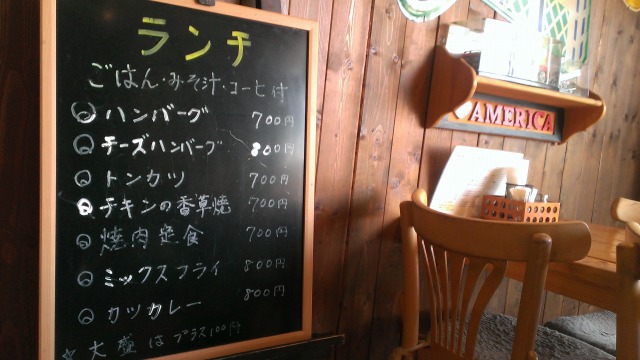 ランチ
ごはん・みそ汁・コーヒ付
ハンバーグ 700円
チーズハンバーグ 800円
トンカツ 700円
チキンの香草焼 700円
焼肉定食 700円
ミックスフライ 800円
カツカレー 800円
☆大盛はプラス100円
AMERICA